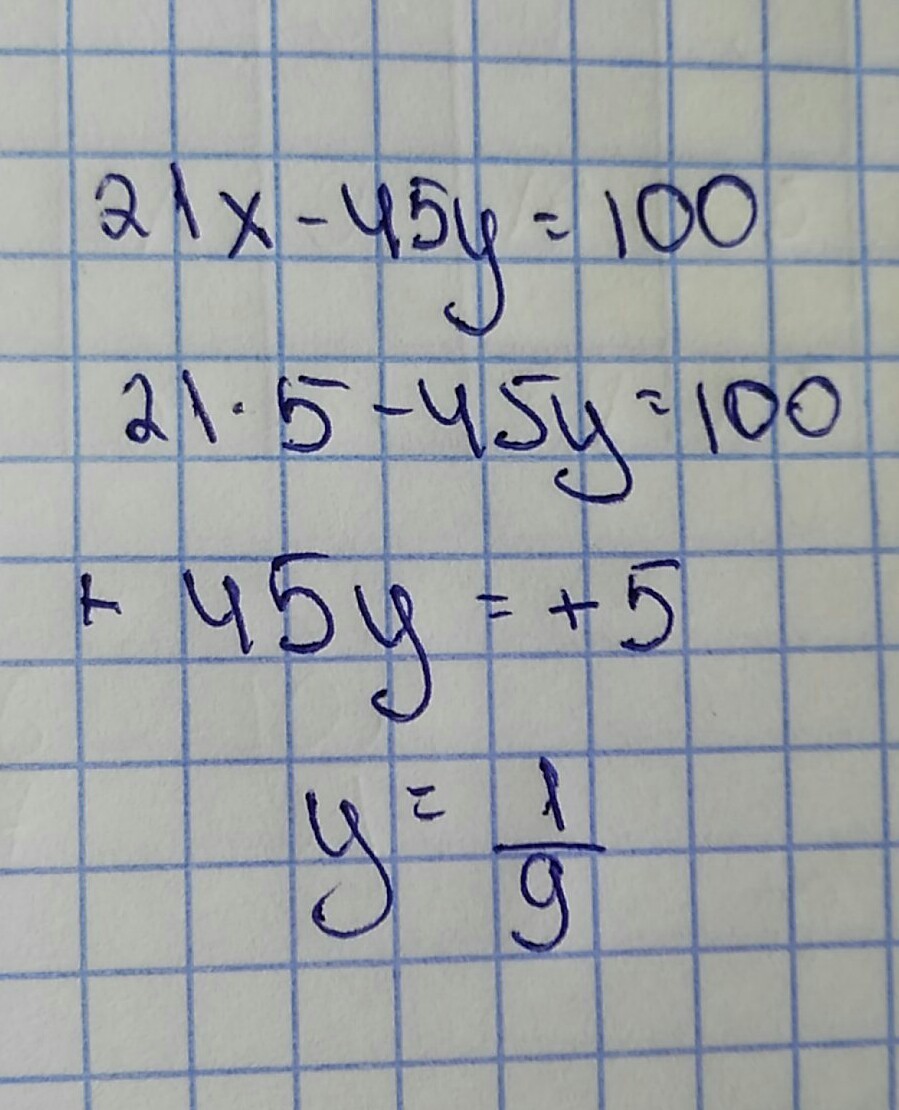 21x - 45y = 100
21 · 5 - 45y = 100
+ 45y = + 5
y = 1/9